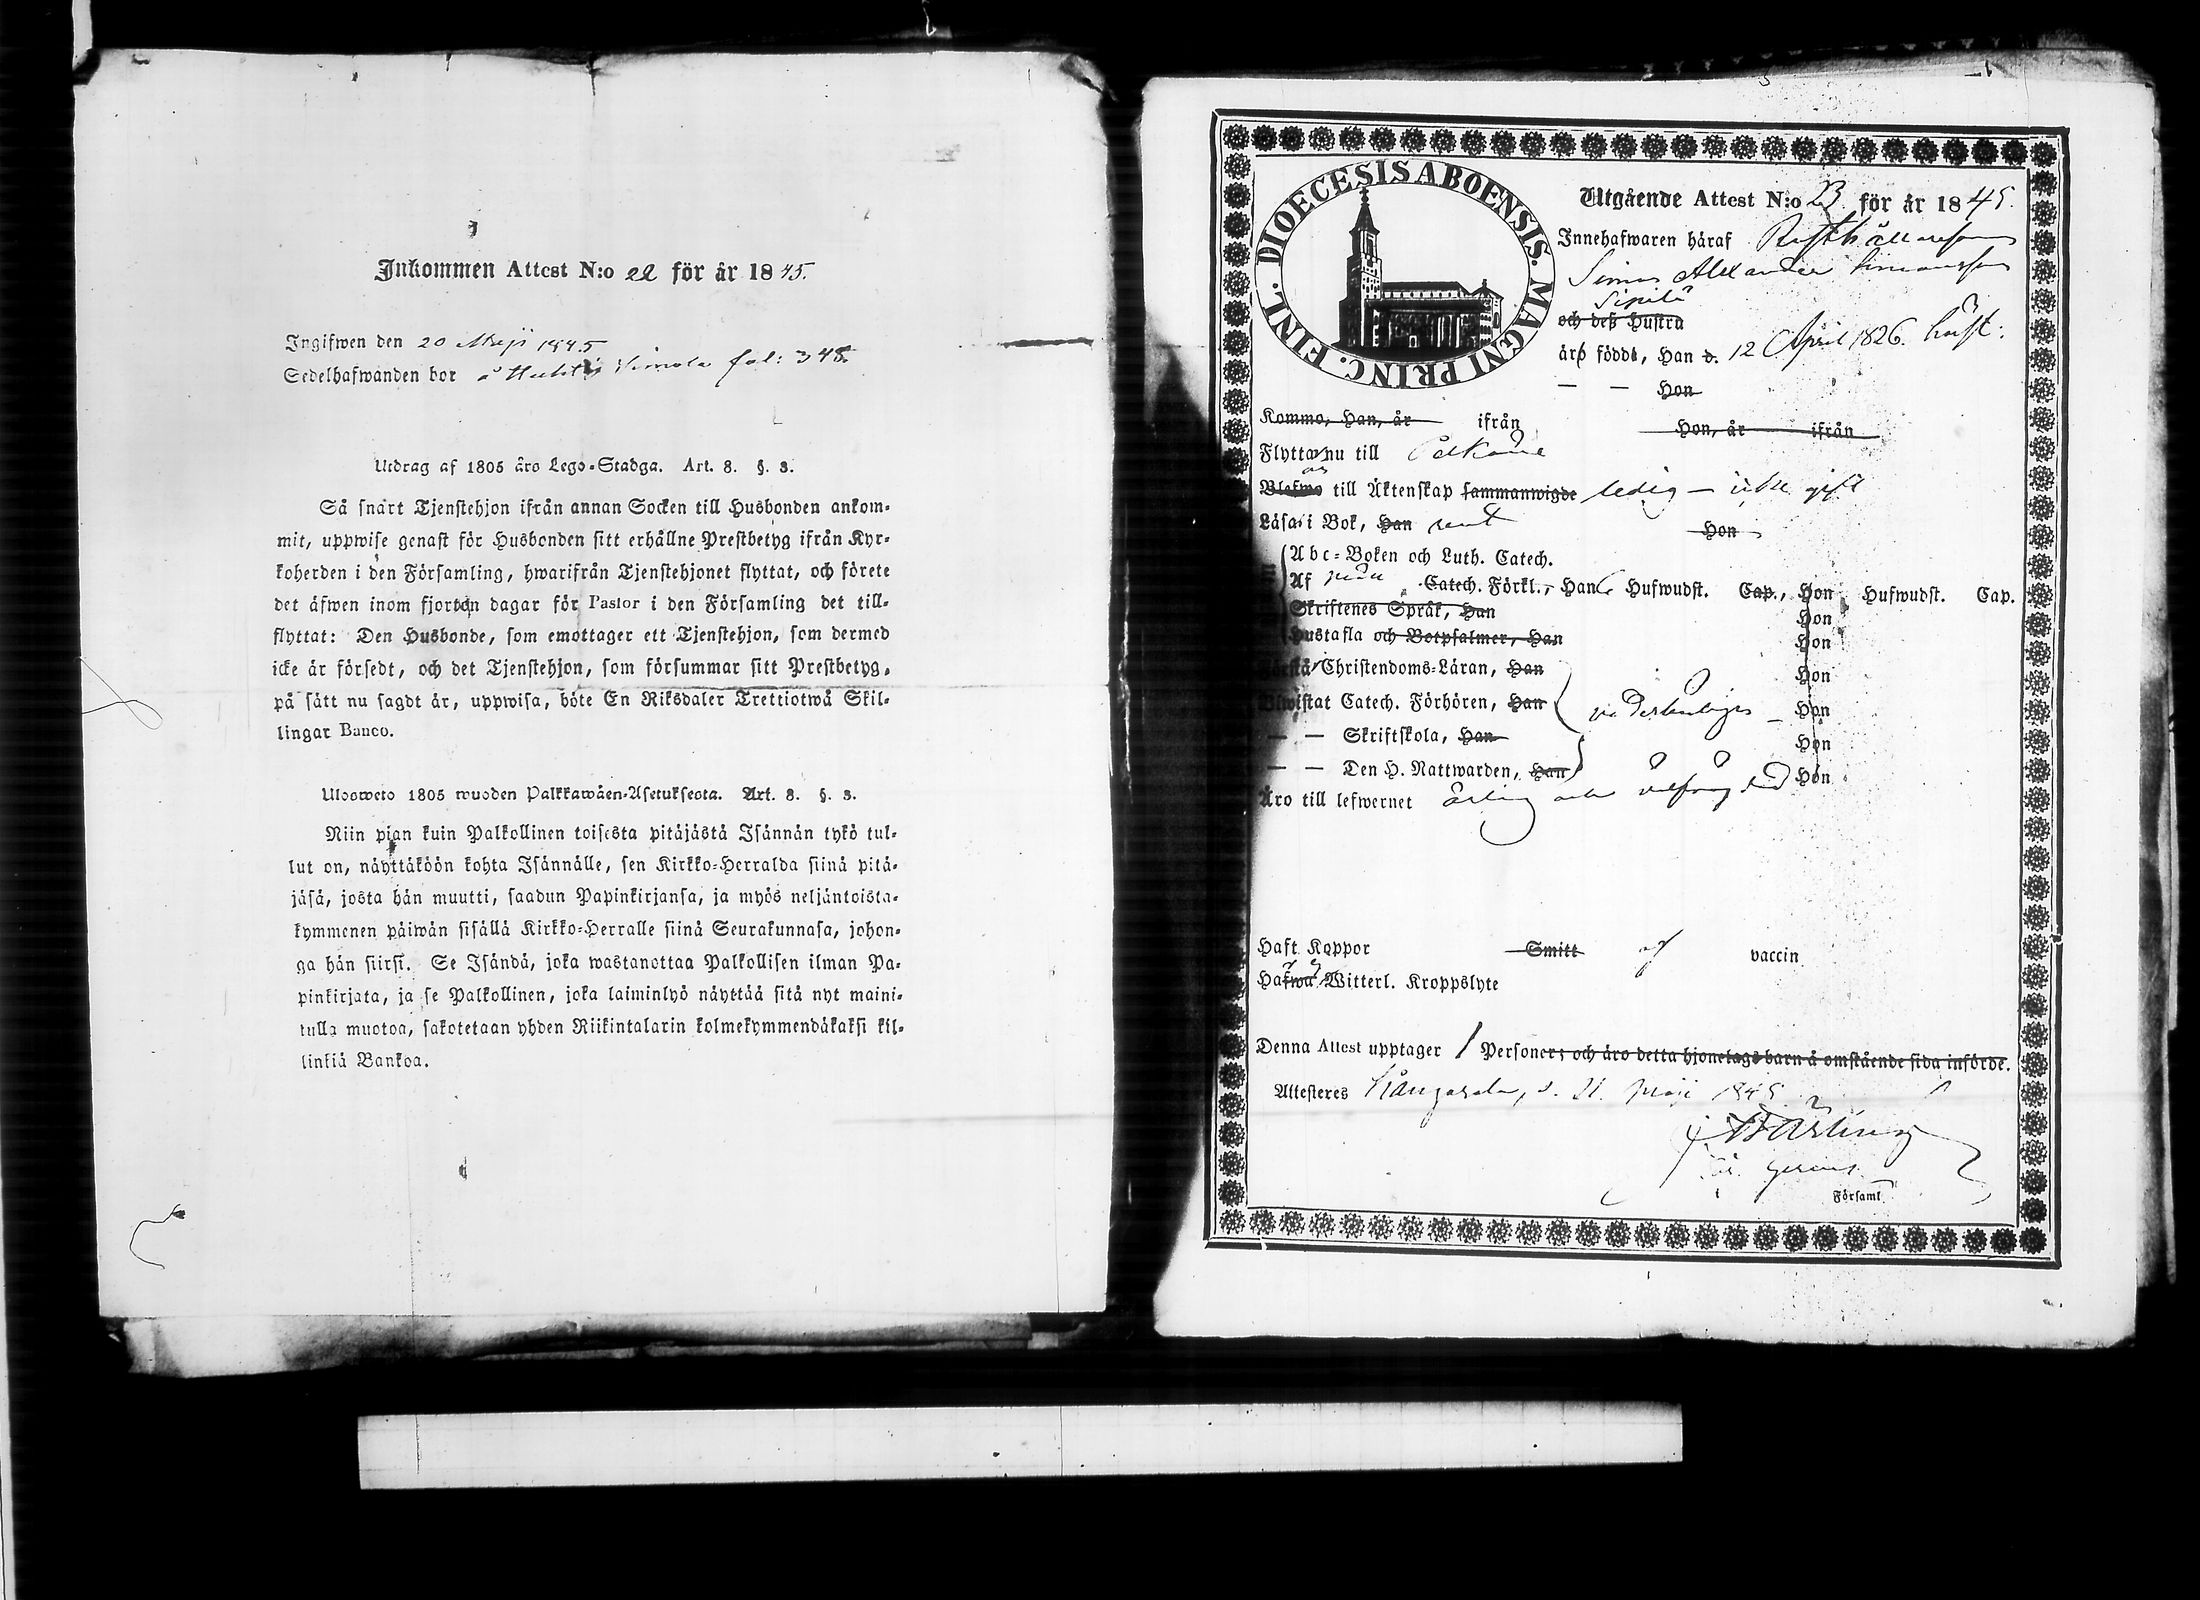 Inkommen Attest N:o 22 för år 1845.
Ingifwen den 20 Maji 1845
Sedelhafwanden bor å Simola fol: 348.
Utdrag af 1805 års Lego-Stadga. Art. 8. §. 3.
Så snart Tjenstehjon ifrån annan Socken till Husbonden ankom-
mit, uppwise genast för Husbonden sitt erhållne Prestbetyg ifrån Kyr-
koherden i den Församling, hwarifrån Tjenstehjonet flyttat, och förete
det äfwen inom fjorton dagar för Pastor i den Församling det till-
flyttat: Den Husbonde, som emottager ett Tjenstehjon, som dermed
icke är försedt, och det Tjenstehjon, som försummar sitt Prestbetyg,
på sätt nu sagdt är, uppwisa, böte En Riksdaler Trettiotwå Skil-
lingar Banco.
Ulosweto 1805 wuoden Palkkawäen-Asetuksesta. Art. 8. §. 3.
Niin pian kuin Palkollinen toisesta pitäjästä Isännän tykö tul-
lut on, näyttäköön kohta Isännälle, sen Kirkko-Herralda siinä pitä-
jäsä, josta hän muutti, saadun Papinkirjansa, ja myös neljäntoista-
kymmenen päiwän sisällä Kirkko-Herralle siinä Seurakunnasa, johon-
ga hän siirsi. Se Isändä, joka wastanottaa Palkollisen ilman Pa-
pinkirjata, ja se Palkollinen, joka laiminlyö näyttää sitä nyt maini-
tulla muotoa, sakotetaan yhden Riikintalarin kolmekymmendäkaksi kil-
linkiä Bankoa.
DIOECESIS ABOENSIS. MAGNI PRINC. FINL.
Utgående Attest N:o 23 för år 1845.
Innehafwaren häraf Rusthållaresonen
Simon Alexander Simonsson
Sipilä
och deß Hustru
äro födde, Han d. 12 April 1826. härst:
— — Hon
Kommo, Han, år ifrån Hon, år ifrån
Flytta nu till Pälkäne
Blefwo till Äktenskap sammanwigde ledig — icke gift
Läsa i Bok, Han rent Hon
Abc-Boken och Luth. Catech.
Af Catech. Förkl., Han Hufwudst. Cap., Hon Hufwudst. Cap.
Skriftenes Språk, Han Hon
Hustafla och Botpsalmer, Han Hon
Förstå Christendoms-Läran, Han Hon
Biwistat Catech. Förhören, Han Hon
— — Skriftskola, Han Hon
— — Den H. Nattwarden, Han Hon
Äro till lefwernet ärlig och välfrägdad
Haft Koppor Smitt af vaccin
Hafwa Witterl. Kroppslyte
Denna Attest upptager 1 Personer; och äro detta hjonelags barn å omstående sida införde.
Attesteres Kångasala, d. 21 Maji 1845.
Församl.